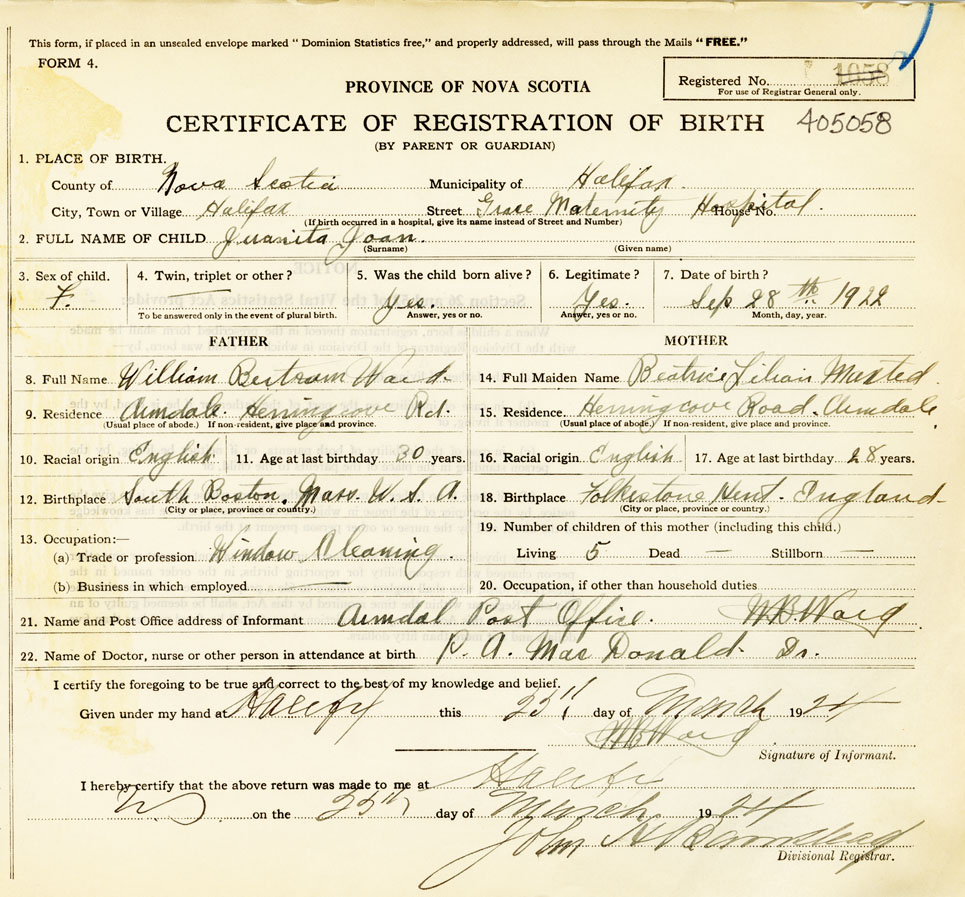 This form, if placed in an unsealed envelope marked "Dominion Statistics free," and properly addressed, will pass through the Mails "FREE."
FORM 4.
Registered No. 1058
For use of Registrar General only.
PROVINCE OF NOVA SCOTIA
CERTIFICATE OF REGISTRATION OF BIRTH 405058
(BY PARENT OR GUARDIAN)
1. PLACE OF BIRTH.
County of Nova Scotia Municipality of Halifax
City, Town or Village Halifax Street Grace Maternity Hospital House No.
(If birth occurred in a hospital, give its name instead of Street and Number)
2. FULL NAME OF CHILD Juanita Joan.
(Surname) (Given name)
3. Sex of child. 4. Twin, triplet or other? 5. Was the child born alive? 6. Legitimate? 7. Date of birth?
F. — Yes. Yes. Sep 28th. 1922
To be answered only in the event of plural birth. Answer, yes or no. Answer, yes or no. Month, day, year.
FATHER MOTHER
8. Full Name William Bertram Ward. 14. Full Maiden Name Beatrice Lilian
9. Residence Armdale. Herringcove Rd. 15. Residence. Herringcove Road. Armdale,
(Usual place of abode.) If non-resident, give place and province. (Usual place of abode.) If non-resident, give place and province.
10. Racial origin English 11. Age at last birthday 30 years. 16. Racial origin English 17. Age at last birthday 28 years.
12. Birthplace South Boston. Mass. U. S. A. 18. Birthplace Folkistone Kent. England
(City or place, province or country.) (City or place, province or country.)
19. Number of children of this mother (including this child.)
13. Occupation:—
(a) Trade or profession Window Cleaning. Living 5 Dead — Stillborn —
(b) Business in which employed — 20. Occupation, if other than household duties
21. Name and Post Office address of Informant Armdal Post Office. W.B. Ward
22. Name of Doctor, nurse or other person in attendance at birth P. A. MacDonald Dr.
I certify the foregoing to be true and correct to the best of my knowledge and belief.
Given under my hand at Halifx this 25th day of March 1924
W B Ward
Signature of Informant.
I hereby certify that the above return was made to me at Halifx
on the 25th day of March 1924
John H
Divisional Registrar.